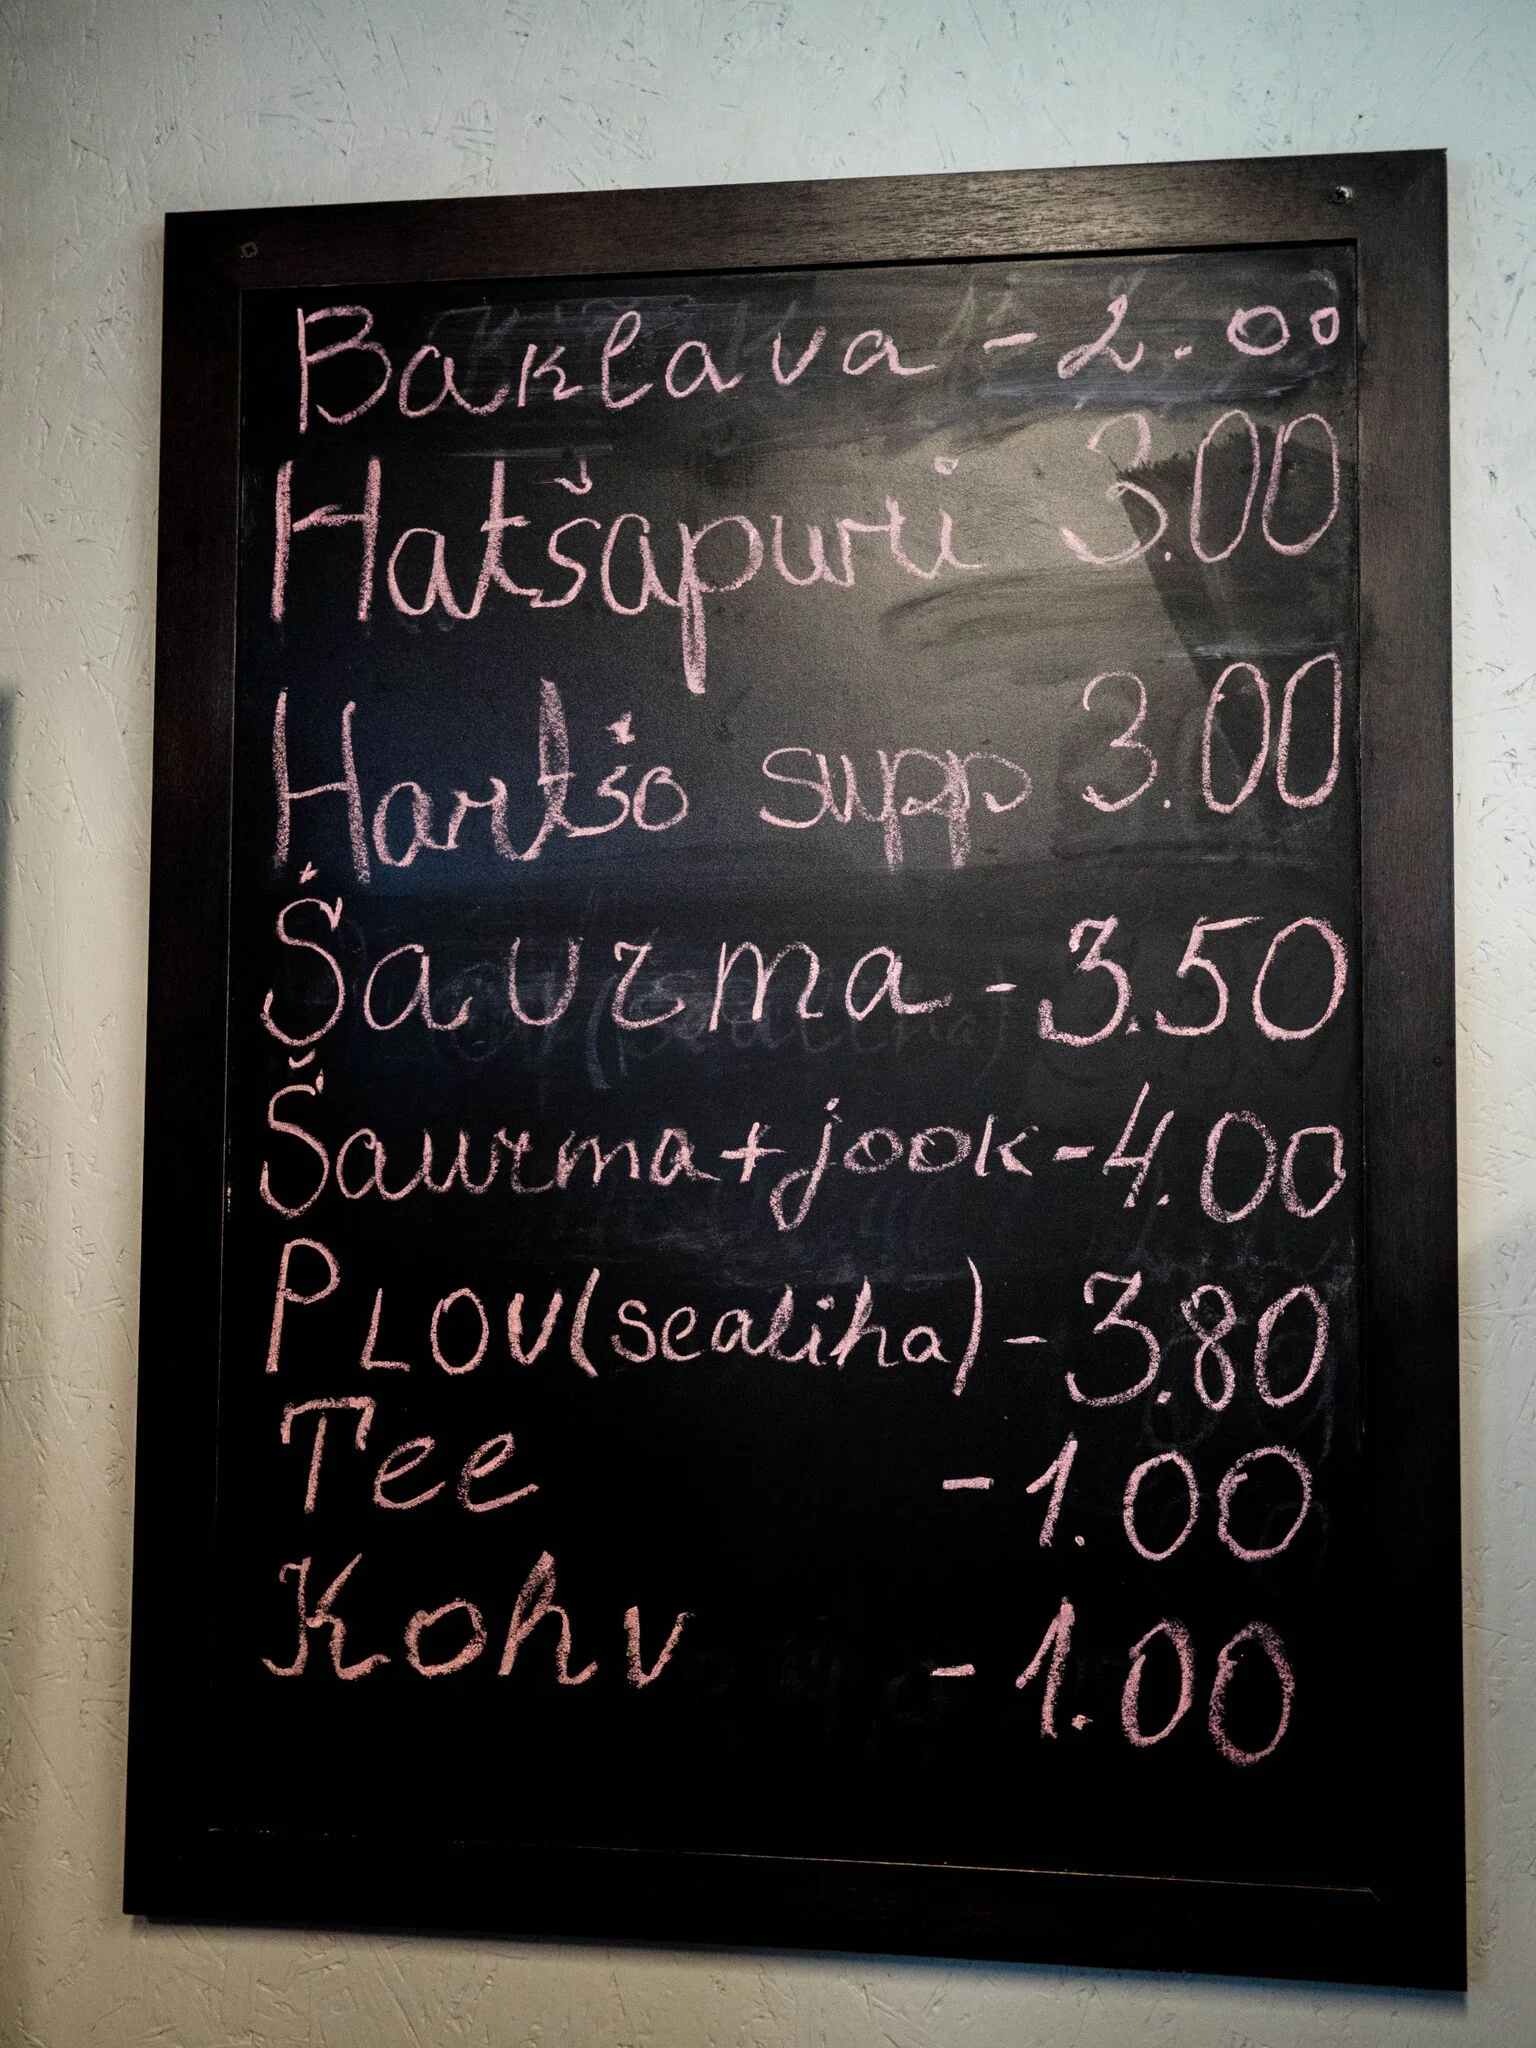 Baklava - 2.00
Hatšapuri 3.00
Hartšo supp 3.00
Šaurma - 3.50
Šaurma + jook - 4.00
PLOV (sealiha) - 3.80
Tee - 1.00
Kohv - 1.00